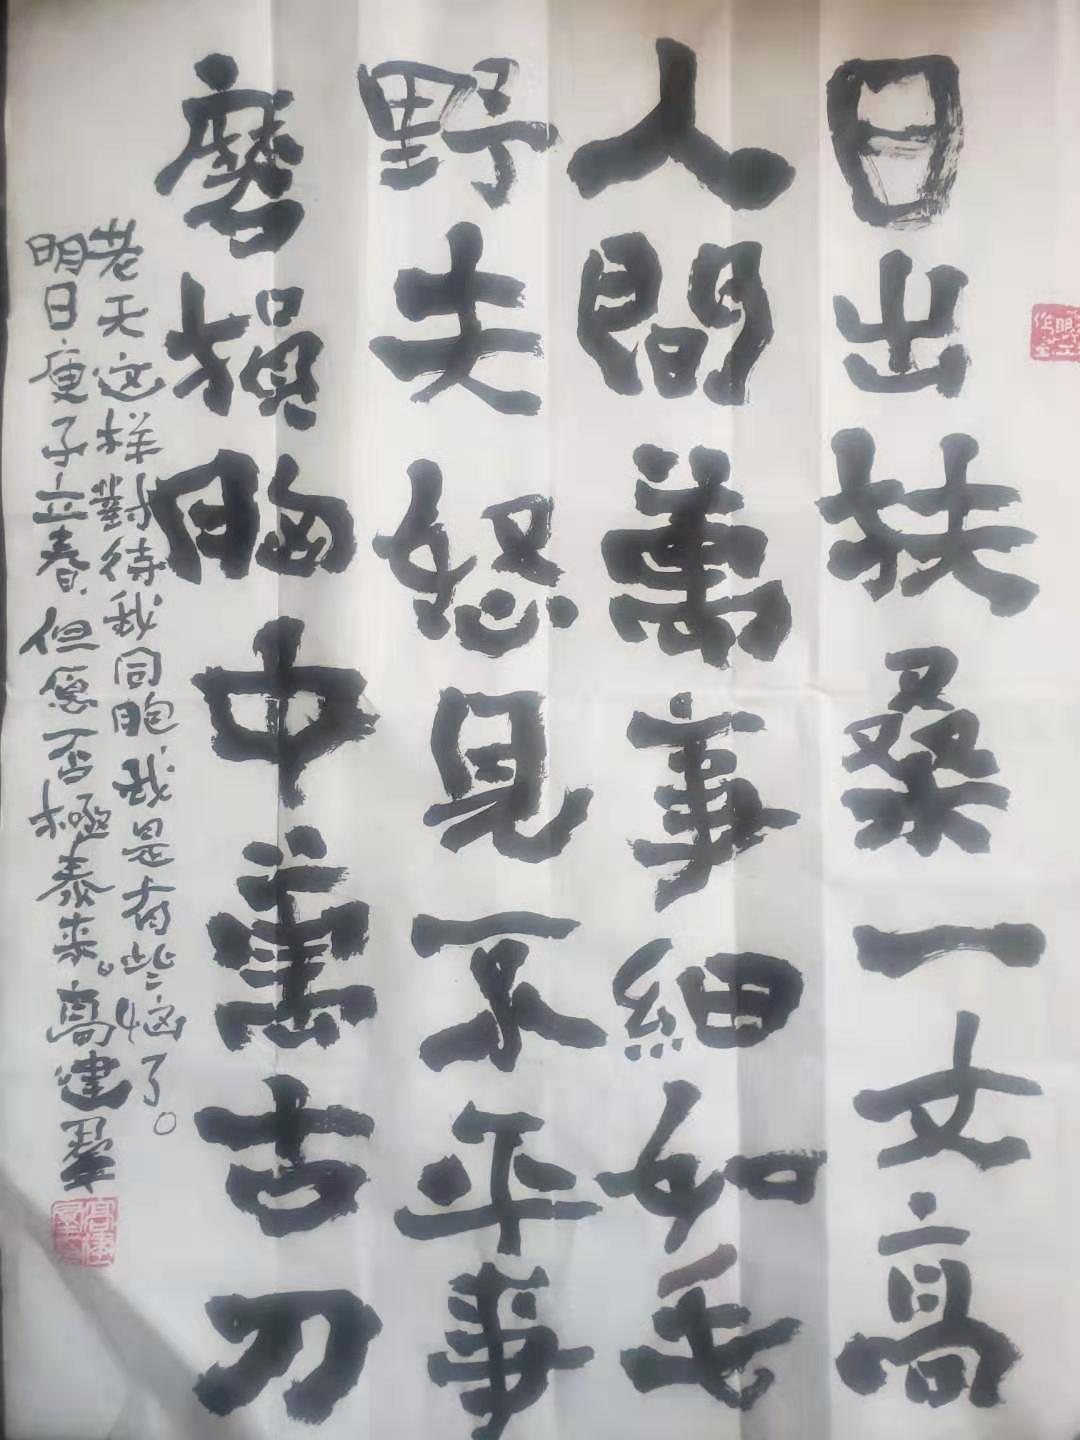 日出扶桑一丈高
人間萬事細如毛
野夫怒見不平事
磨損胸中萬古刀
老天这样對待我同胞我是有些恼了。
明日庚子立春但愿否極泰来。高建群